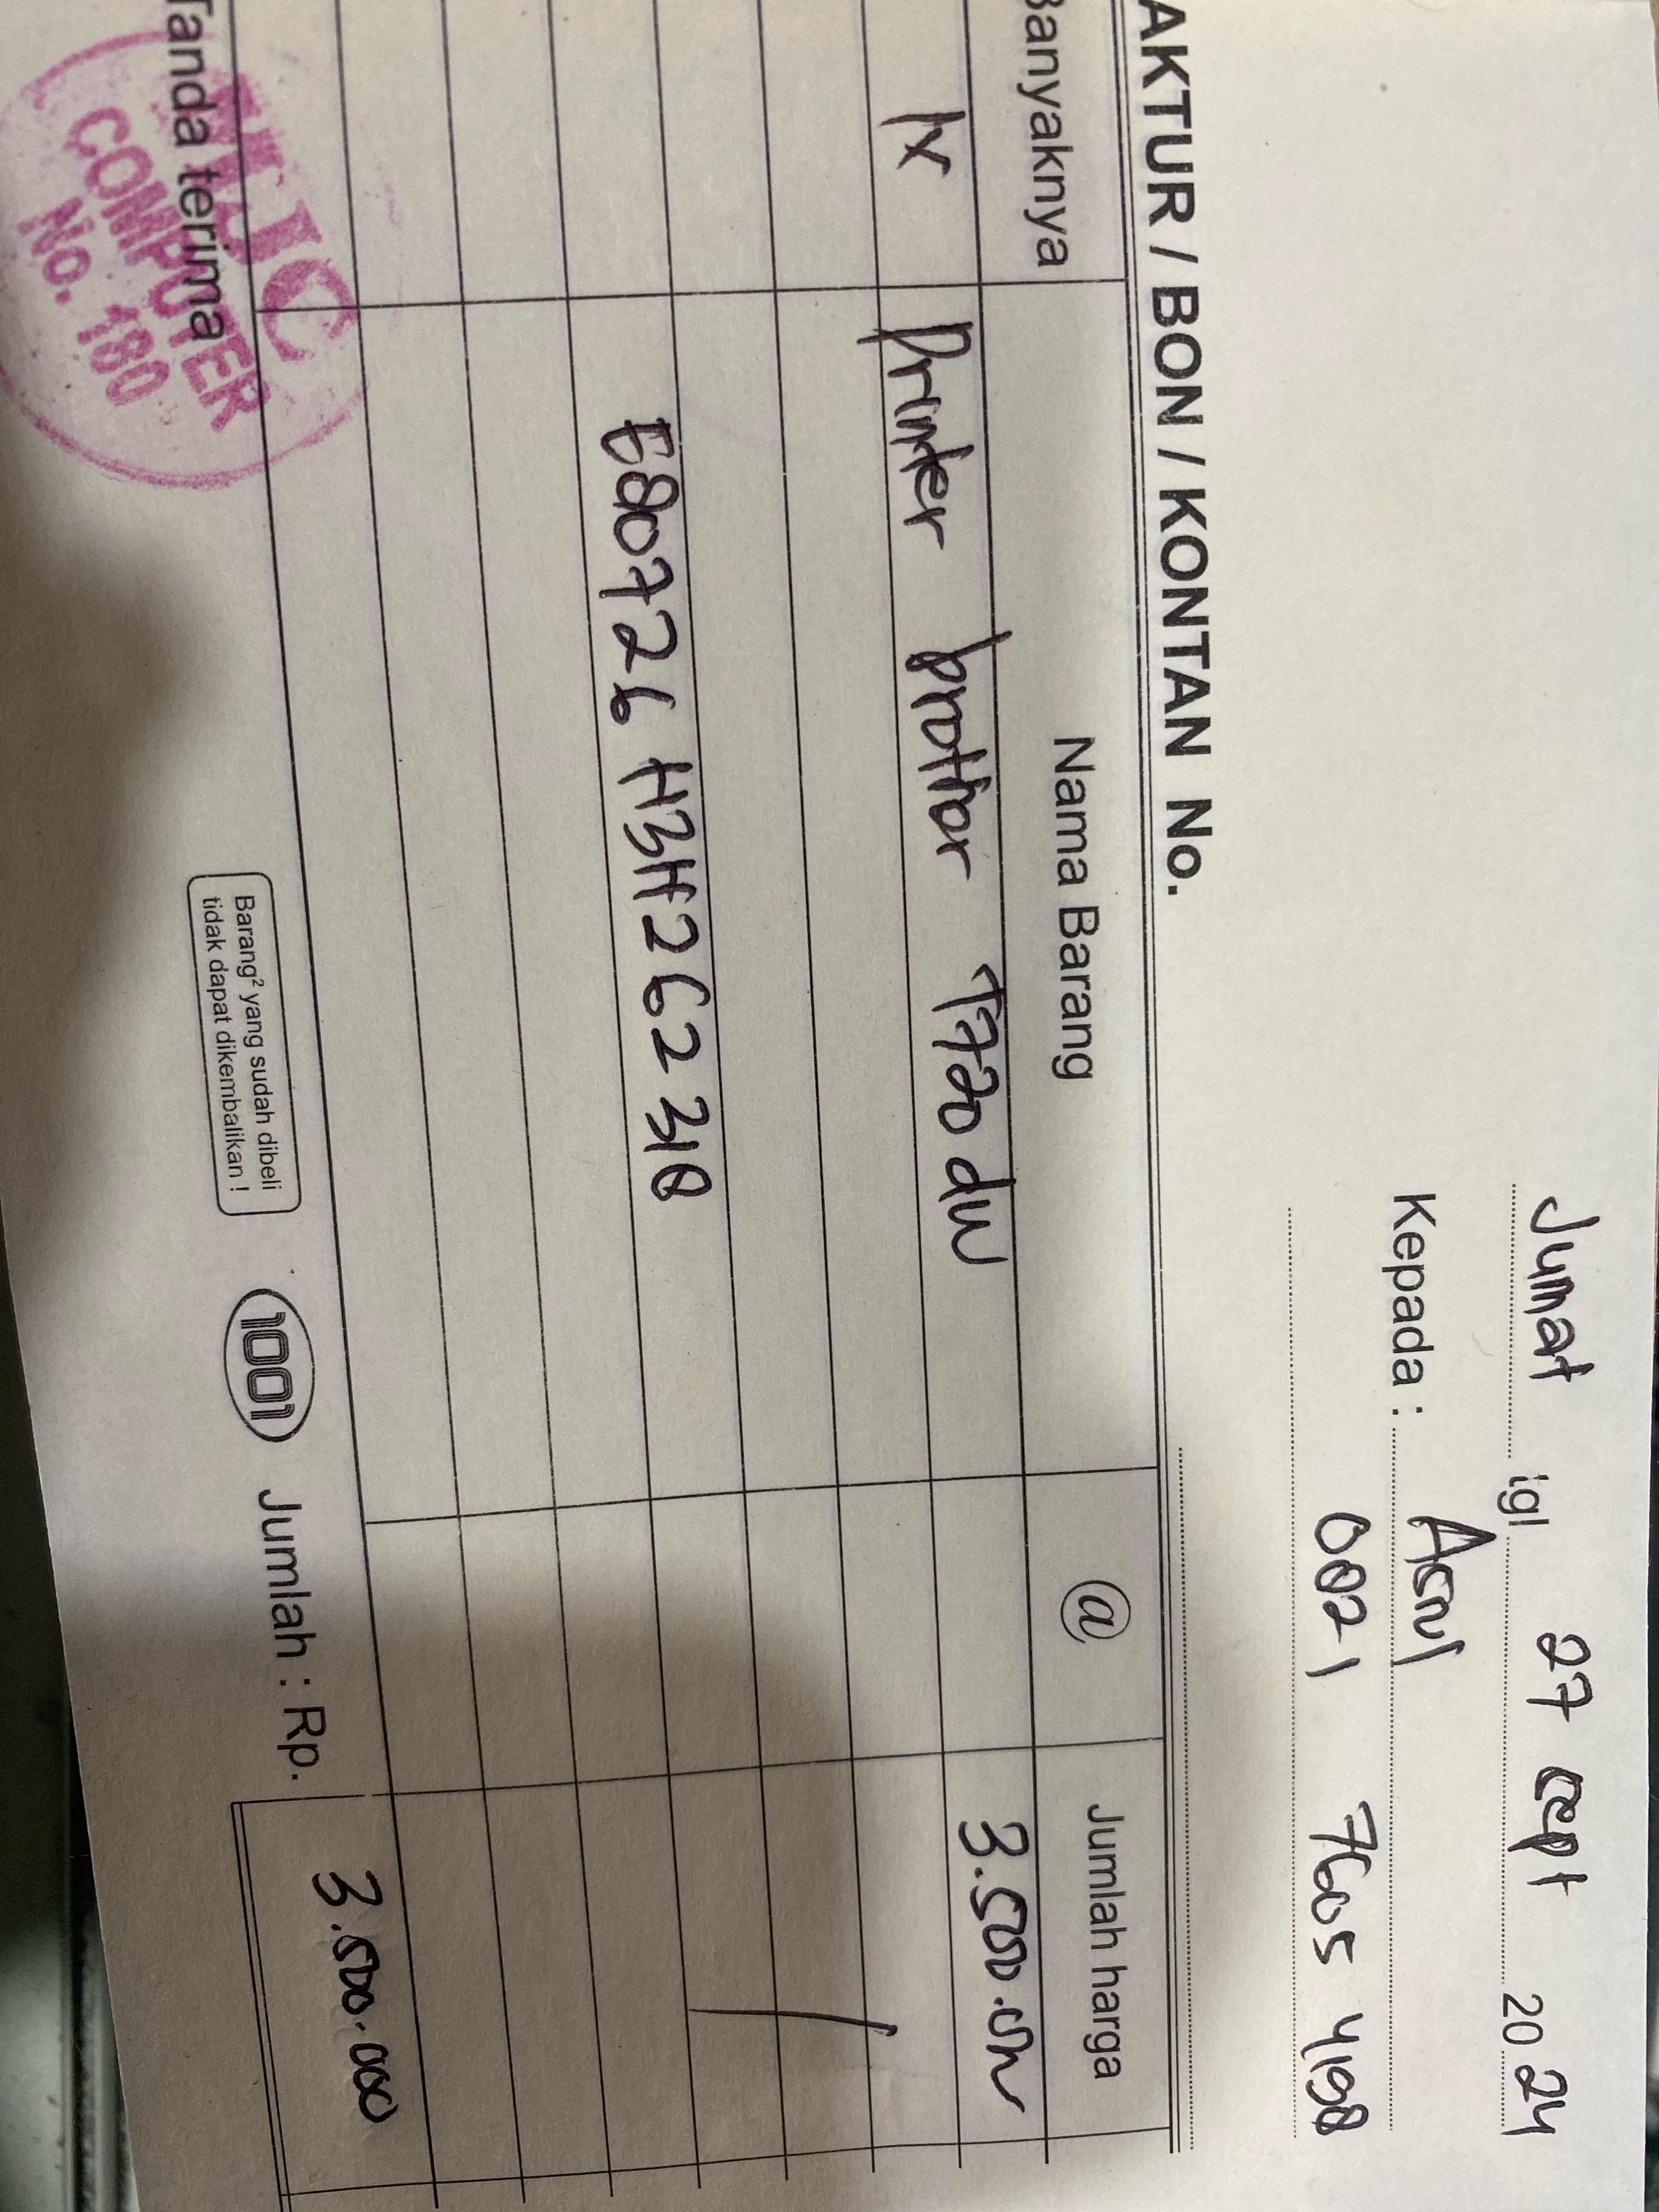 Jumat tgl 27 sept 2024
Kepada : Asrul
0821 7605 4198
AKTUR / BON / KONTAN No.
Banyaknya Nama Barang @ Jumlah harga
1x Printer brother T720 dw 3.500.000
E80726H3H262318
Tanda terima
COMPUTER
No. 180
Barang² yang sudah dibeli
tidak dapat dikembalikan !
1001
Jumlah : Rp. 3.500.000